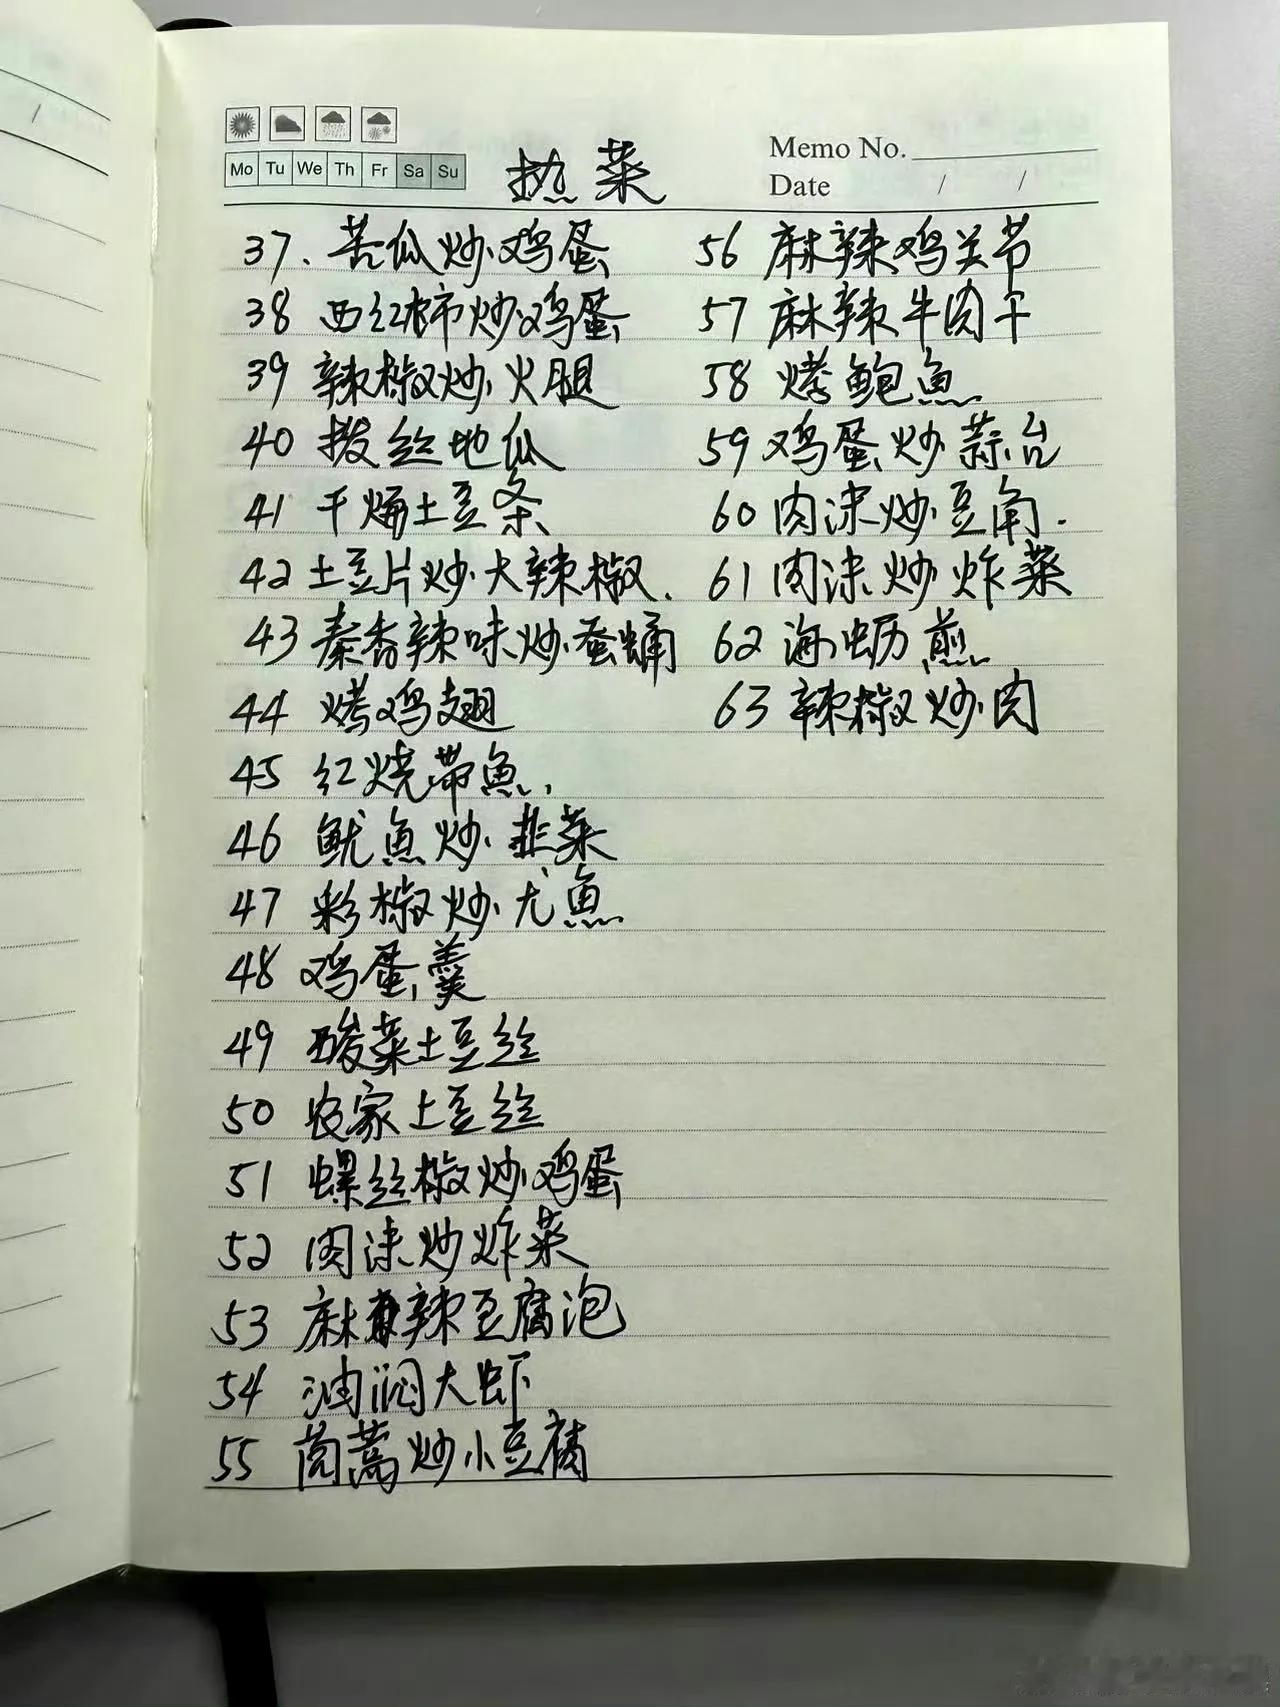 Mo Tu We Th Fr Sa Su
热菜
Memo No.
Date / /
37. 苦瓜炒鸡蛋
38 西红柿炒鸡蛋
39 辣椒炒火腿
40 拨丝地瓜
41 干煸土豆条
42 土豆片炒大辣椒.
43 秦香辣味炒蚕蛹
44 烤鸡翅
45 红烧带魚.
46 鱿魚炒韭菜
47 彩椒炒尤魚
48 鸡蛋羹
49 酸菜土豆丝
50 农家土豆丝
51 螺丝椒炒鸡蛋
52 肉沫炒炸菜
53 麻辣豆腐泡
54 油焖大虾
55 茼蒿炒小豆腐
56 麻辣鸡关节
57 麻辣牛肉干
58 烤鲍魚
59 鸡蛋炒蒜台
60 肉沫炒豆角.
61 肉沫炒炸菜
62 海蛎煎
63 辣椒炒肉